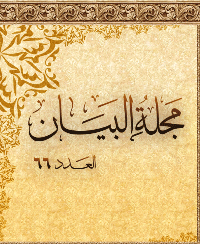 مجلة البيان
العدد ٦٦